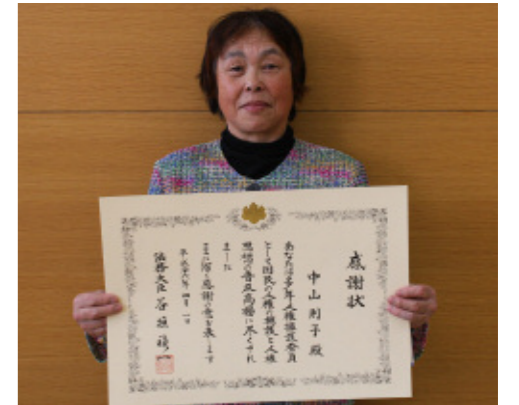 感謝状
中山則子殿
あなたは多年人権擁護委員
として国民の人権の擁護と人権
思想の普及高揚に尽くされ
ました
よって深く感謝の意を表します
平成二十六年四月一日
法務大臣 谷垣禎一